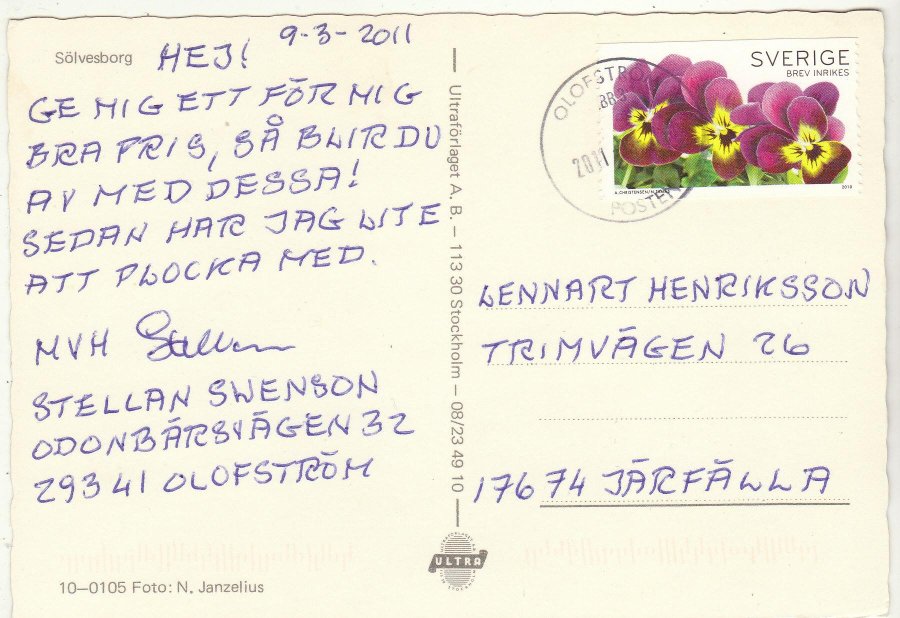 Sölvesborg
HEJ! 9-3-2011
GE MIG ETT FÖR MIG
BRA PRIS, SÅ BLIR DU
AV MED DESSA!
SEDAN HAR JAG LITE
ATT PLOCKA MED.
MVH Stellan
STELLAN SWENSON
ODONBÄRSVÄGEN 32
293 41 OLOFSTRÖM
10–0105 Foto: N. Janzelius
Ultraförlaget A. B. – 113 30 Stockholm – 08/23 49 10
ULTRA
OLOFSTRÖ
2011
POSTEN
SVERIGE
BREV INRIKES
2010
LENNART HENRIKSSON
TRIMVÄGEN 26
176 74 JÄRFÄLLA